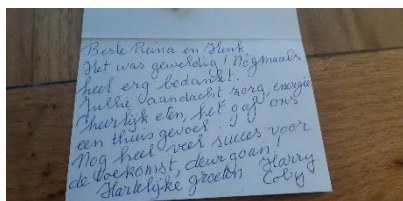 Beste Reina en Henk
Het was geweldig! Nogmaals
heel erg bedankt.
Jullie aandacht zorg, energie
heerlijk eten, het gaf ons
een thuis gevoel.
Nog heel veel succes voor
de toekomst, deurgoan!
Hartelijke groeten Harry
Coby